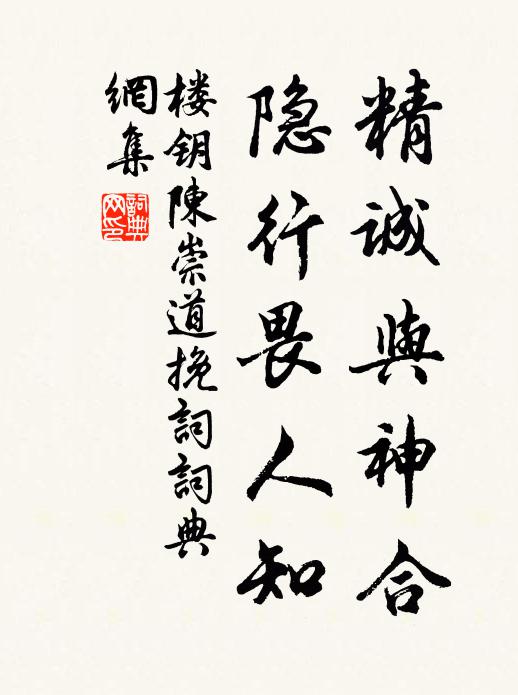 精誠與神合
隐行畏人知
楼钥陳崇道挽詞詞典
網集
詞典网印